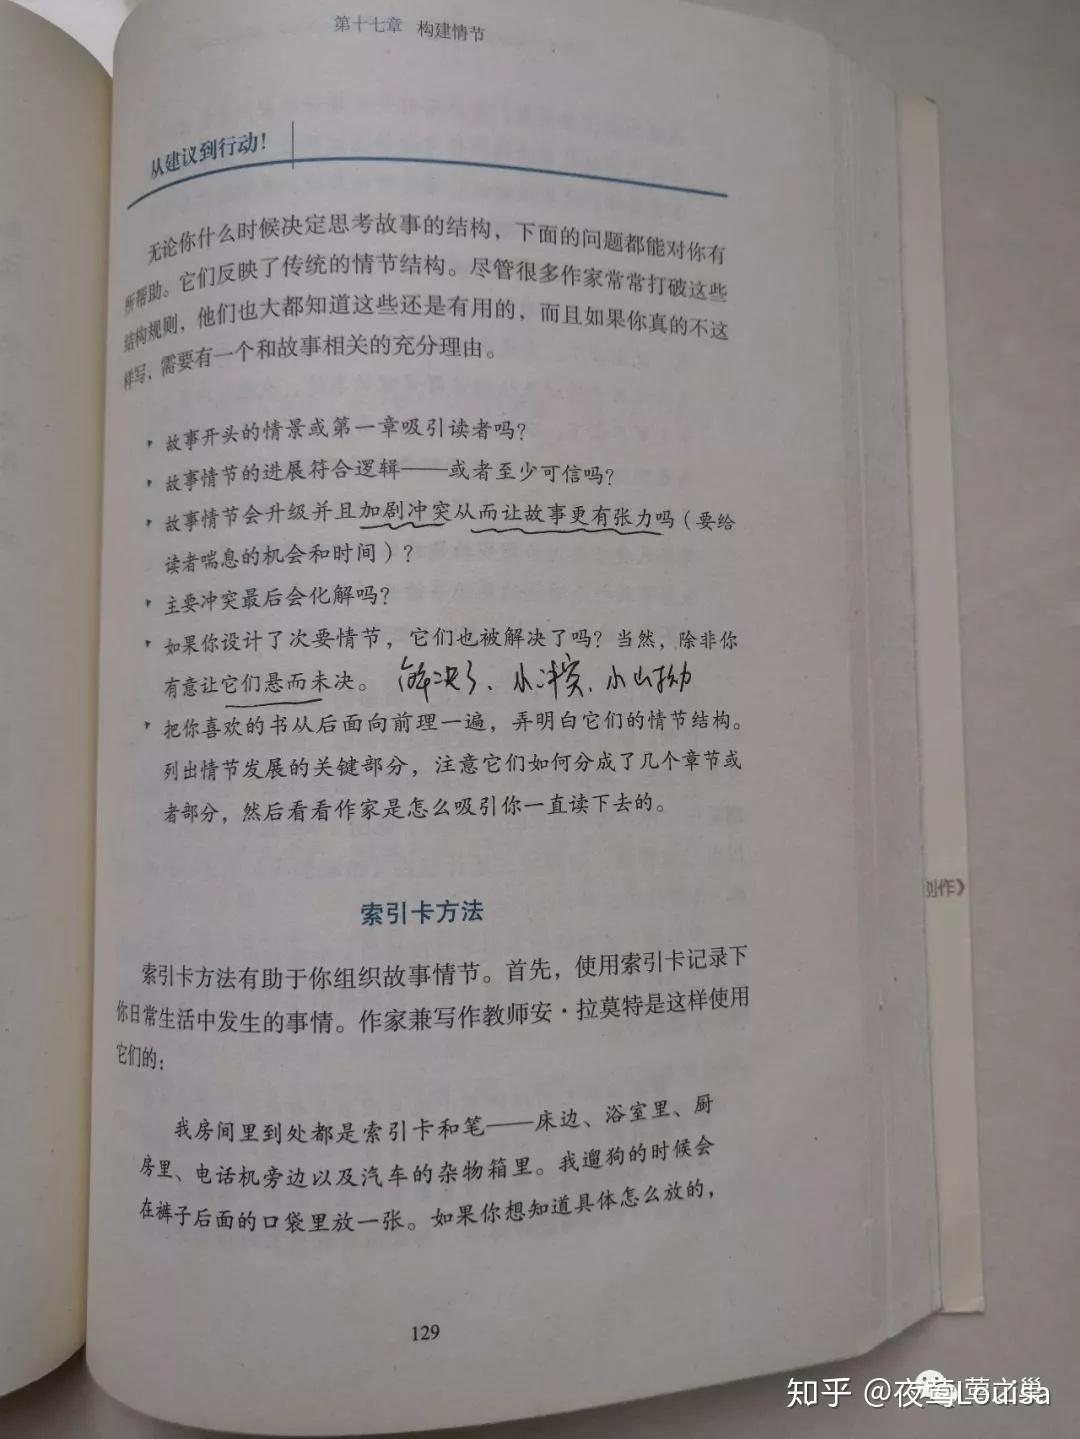 第十七章 构建情节
从建议到行动！
无论你什么时候决定思考故事的结构，下面的问题都能对你有
所帮助。它们反映了传统的情节结构。尽管很多作家常常打破这些
结构规则，他们也大都知道这些还是有用的，而且如果你真的不这
样写，需要有一个和故事相关的充分理由。
故事开头的情景或第一章吸引读者吗？
故事情节的进展符合逻辑——或者至少可信吗？
故事情节会升级并且加剧冲突从而让故事更有张力吗（要给
读者喘息的机会和时间）？
主要冲突最后会化解吗？
如果你设计了次要情节，它们也被解决了吗？当然，除非你
有意让它们悬而未决。 解决了、小冲突、小山坳
把你喜欢的书从后面向前理一遍，弄明白它们的情节结构。
列出情节发展的关键部分，注意它们如何分成了几个章节或
者部分，然后看看作家是怎么吸引你一直读下去的。
创作》
索引卡方法
索引卡方法有助于你组织故事情节。首先，使用索引卡记录下
你日常生活中发生的事情。作家兼写作教师安·拉莫特是这样使用
它们的：
我房间里到处都是索引卡和笔——床边、浴室里、厨
房里、电话机旁边以及汽车的杂物箱里。我遛狗的时候会
在裤子后面的口袋里放一张。如果你想知道具体怎么放的，
129
知乎 @夜莺Louisa
莺之巢